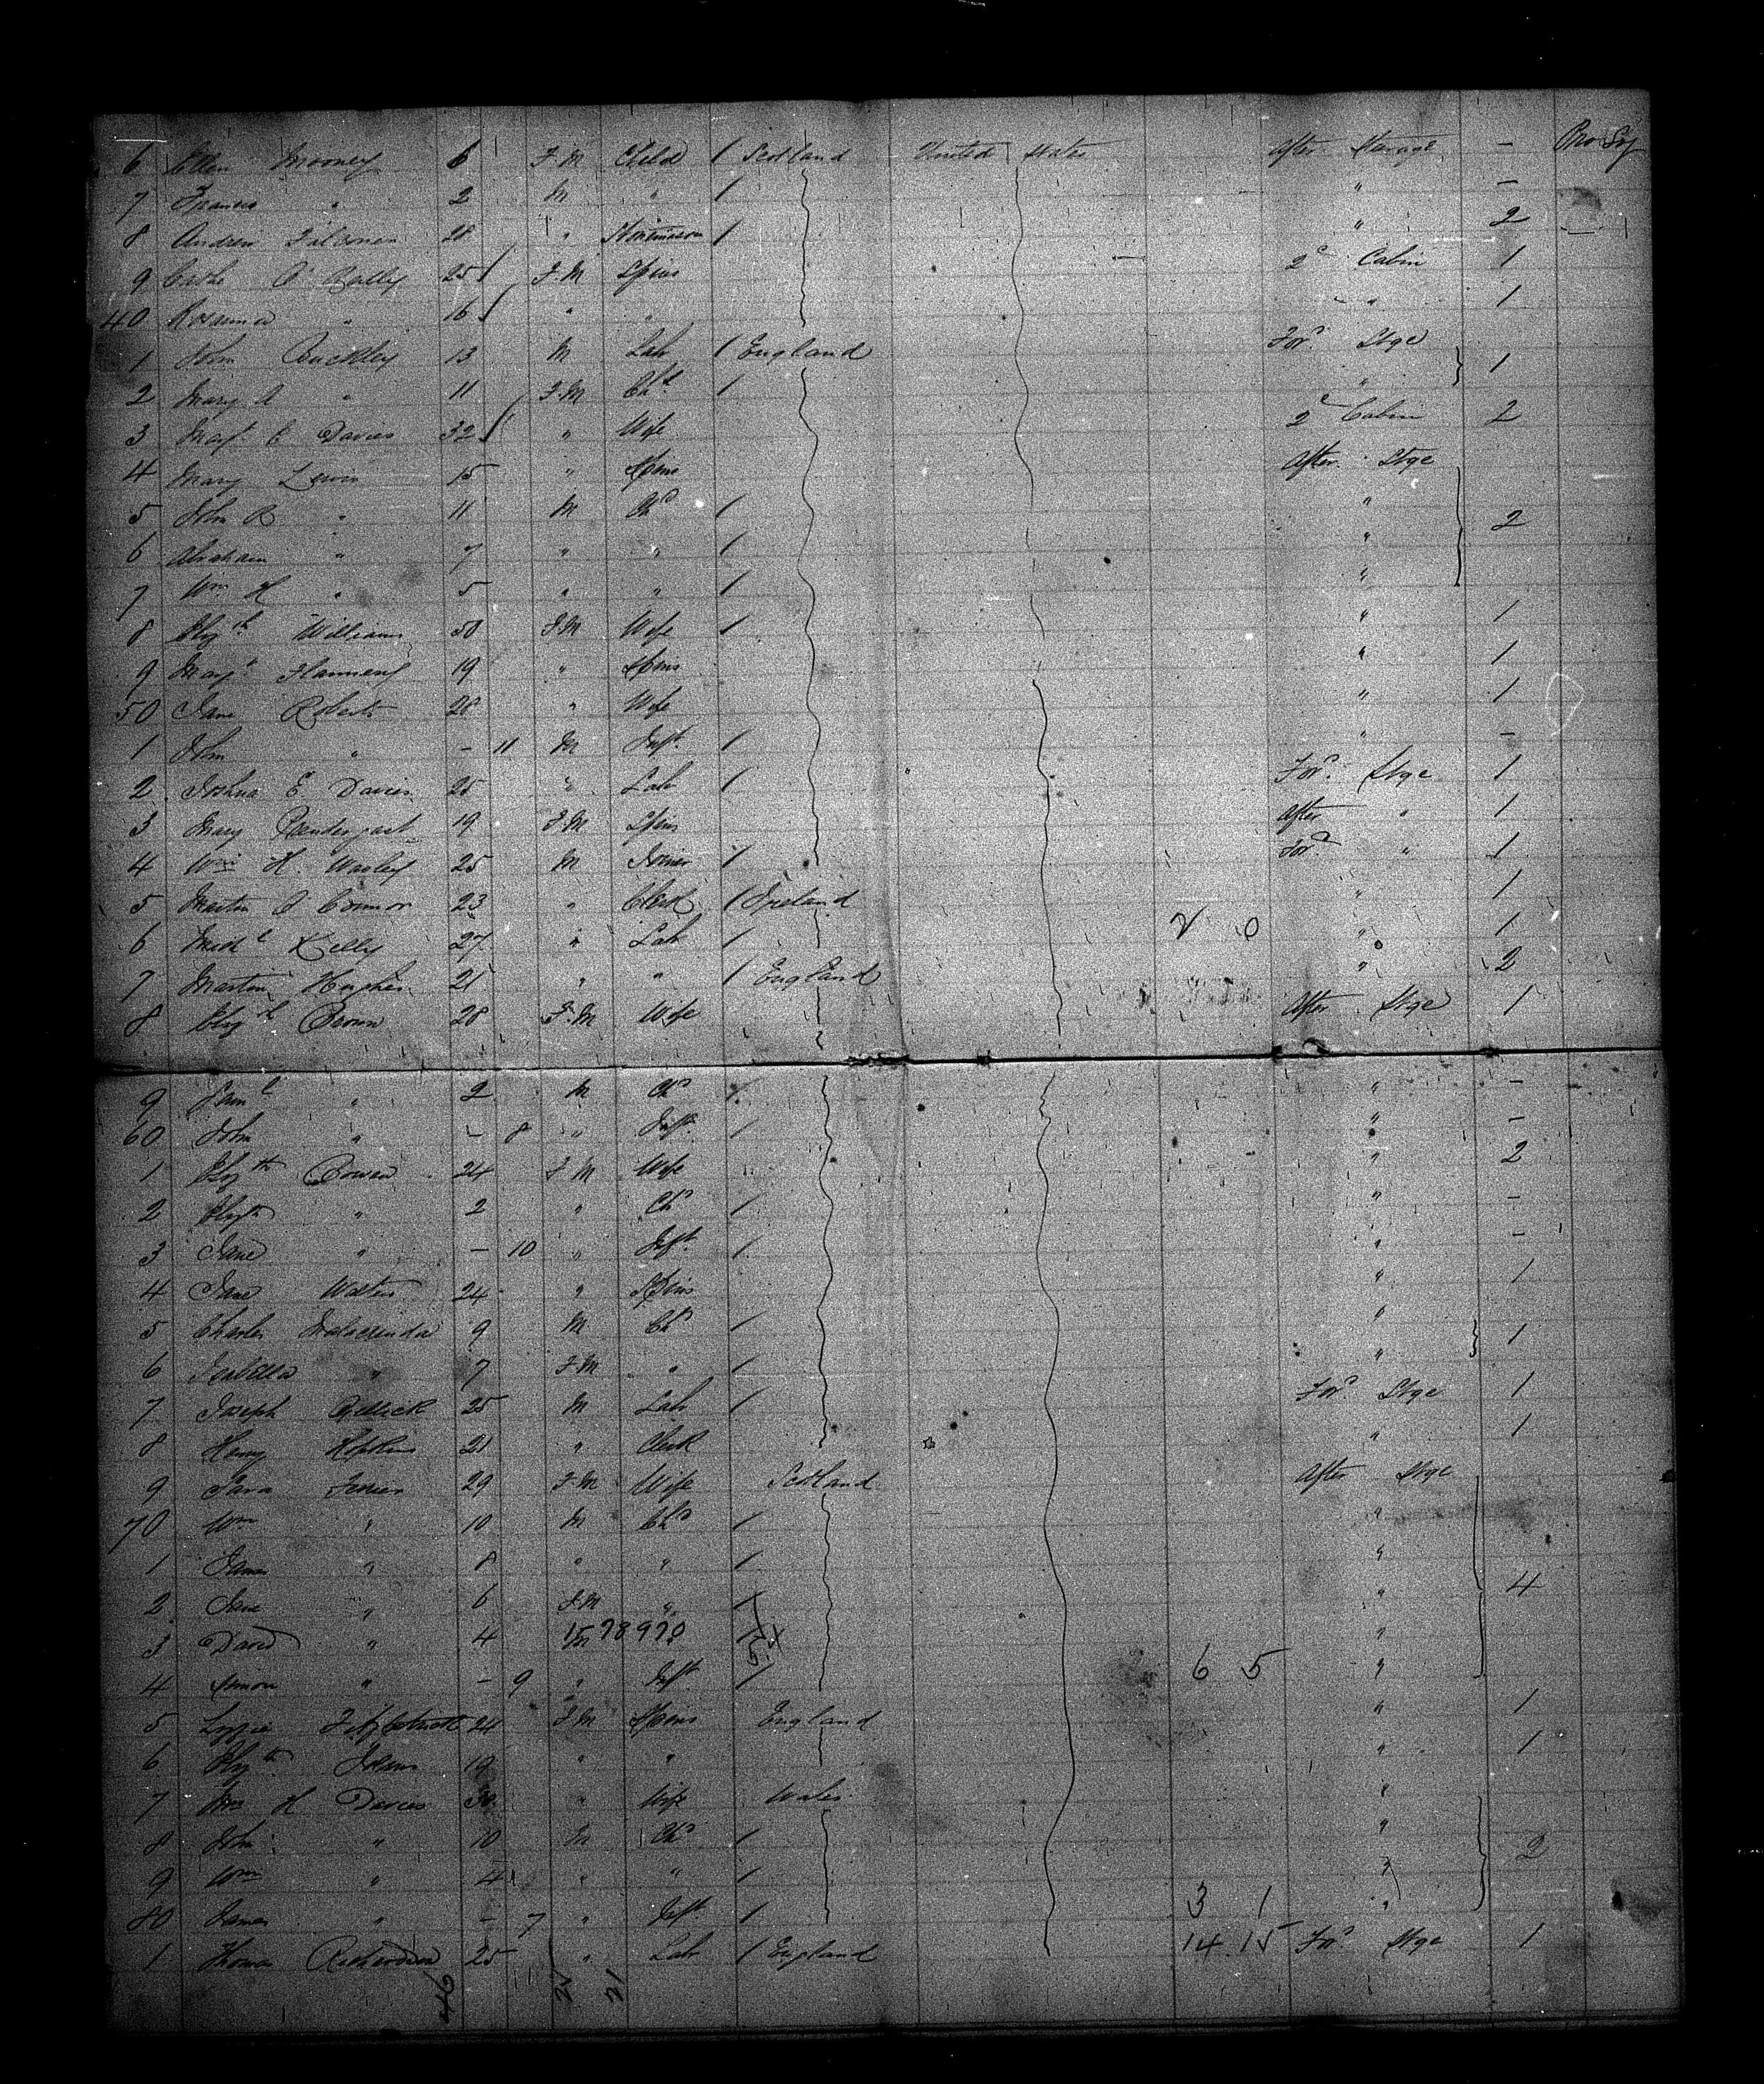 6 Ellen Mooney 6 F.M Child 1 Scotland United States After Steerage -
7 Francis " 2 M " 1 " -
8 Andrew 28 " 1 " 2
9 O'Reilly 25 F.M Spins 2c Cabin 1
40 " 16 " " " 1
1 John Buckley 13 M Lab 1 England Ford Stge
2 Mary A " 11 F.M Chd 1 " 1
3 Margt E Davies 32 " Wife 2c Cabin 2
4 Mary Lewis 15 " Spins After Stge
5 John R " 11 M Chd 1 "
6 Abraham " 7 " " 1 " 2
7 Wm H " 5 " " 1 "
8 Elizth Williams 50 F.M Wife 1 " 1
9 Margt Flannery 19 " Spins " 1
50 Jane Roberts 28 " Wife " 1
1 John " - 11 M Inft 1 " -
2 Joshua E Davies 25 " Lab 1 Ford Stge 1
3 Mary Prendergast 19 F.M Spins After " 1
4 Wm H. 25 M Joiner 1 Ford " 1
5 Martin O'Connor 23 " Clerk 1 Ireland " 1
6 Michl Kelly 27 " Lab 1 2 0 " 1
7 Martin Hughes 21 " " 1 England " 2
8 Elizth Brown 28 F.M Wife After Stge 1
9 Saml " 2 M Chd 1 " -
60 John " - 8 " Inft 1 " -
1 Elizth Bowen 24 F M Wife " 2
2 Elizth " 2 " Chd 1 " -
3 Jane " - 10 " Inft 1 " -
4 Jane Walters 24 " Spins " 1
5 Charles 9 M Chd 1 "
6 Isabella " 7 F.M " 1 " 1
7 Joseph 25 M Lab 1 Ford Stge 1
8 Henry Hopkins 21 " Clerk " 1
9 Sara 29 F.M Wife Scotland After Stge
70 Wm " 10 M Chd 1 "
1 James " 8 " " 1 "
2 Jane " 6 F.M " 1 " 4
3 David " 4 M "
4 Simon " - 9 " Inft 1 6 5 "
5 Lizzie Fitzpatrick 24 F.M Spins England " 1
6 Elizth 19 " " " 1
7 Mrs H Davies 30 " Wife Wales "
8 John " 10 M Chd 1 "
9 Wm " 4 " " 1 " 2
80 James " - 7 " Inft 1 3 1 "
1 Thomas Richardson 25 " Lab 1 England 14 15 Ford Stge 1
46 21